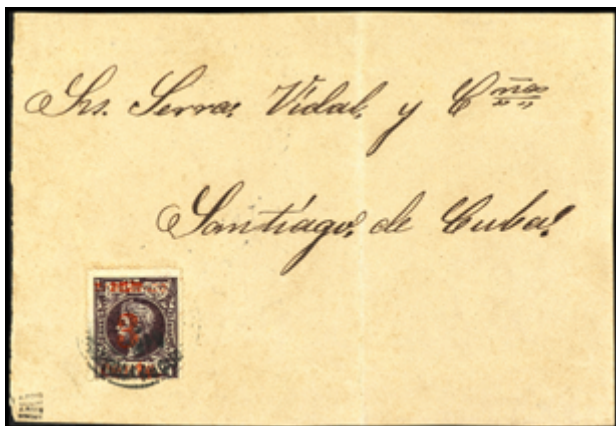 Srs. Serra, Vidal, y Cñía
Santiago, de Cuba.